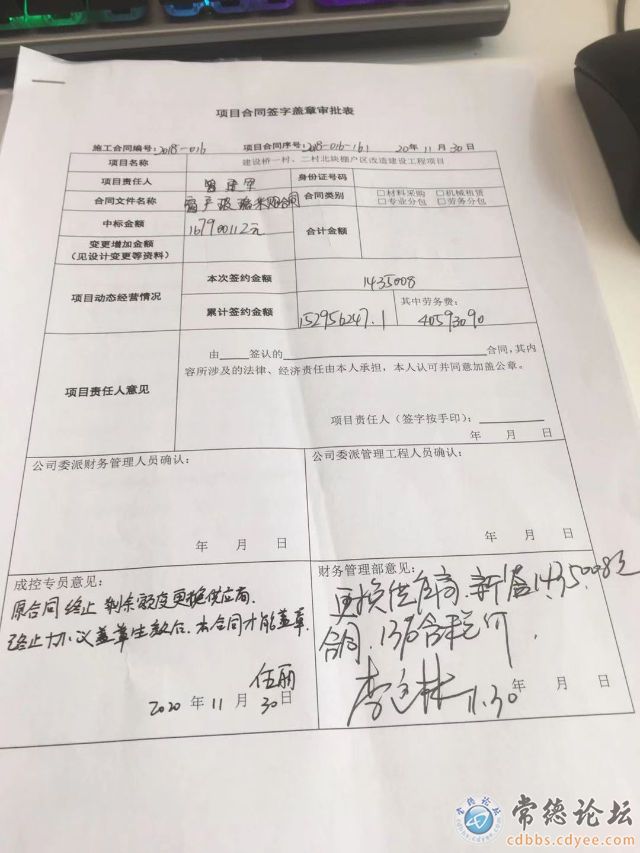 项目合同签字盖章审批表
施工合同编号:2018-016 项目合同序号:2018-016-161 2020年11月30日
项目名称 建设桥一村、二村北块棚户区改造建设工程项目
项目责任人 身份证号码
合同文件名称 采购合同 合同类别 □材料采购 □机械租赁
□专业分包 □劳务分包
中标金额 167900112元 合计金额
变更增加金额
(见设计变更等资料)
项目动态经营情况 本次签约金额 1435008
累计签约金额 152956247.1 其中劳务费: 40593090
项目责任人意见
由____签认的____合同,其内
容所涉及的法律、经济责任由本人承担,本人认可并同意加盖公章。
项目责任人(签字按手印):
年 月 日
公司委派财务管理人员确认: 公司委派管理工程人员确认:
年 月 日 年 月 日
成控专员意见:
原合同终止 剩余额度更换供应商.
终止协议盖章生效后.本合同才能盖章.
任丽
2020年11月30日
财务管理部意见:
更换供应商.新签1435008元
合同.13%含税可,
年 月 日
11.30
常德论坛
cdbbs.cdyee.com